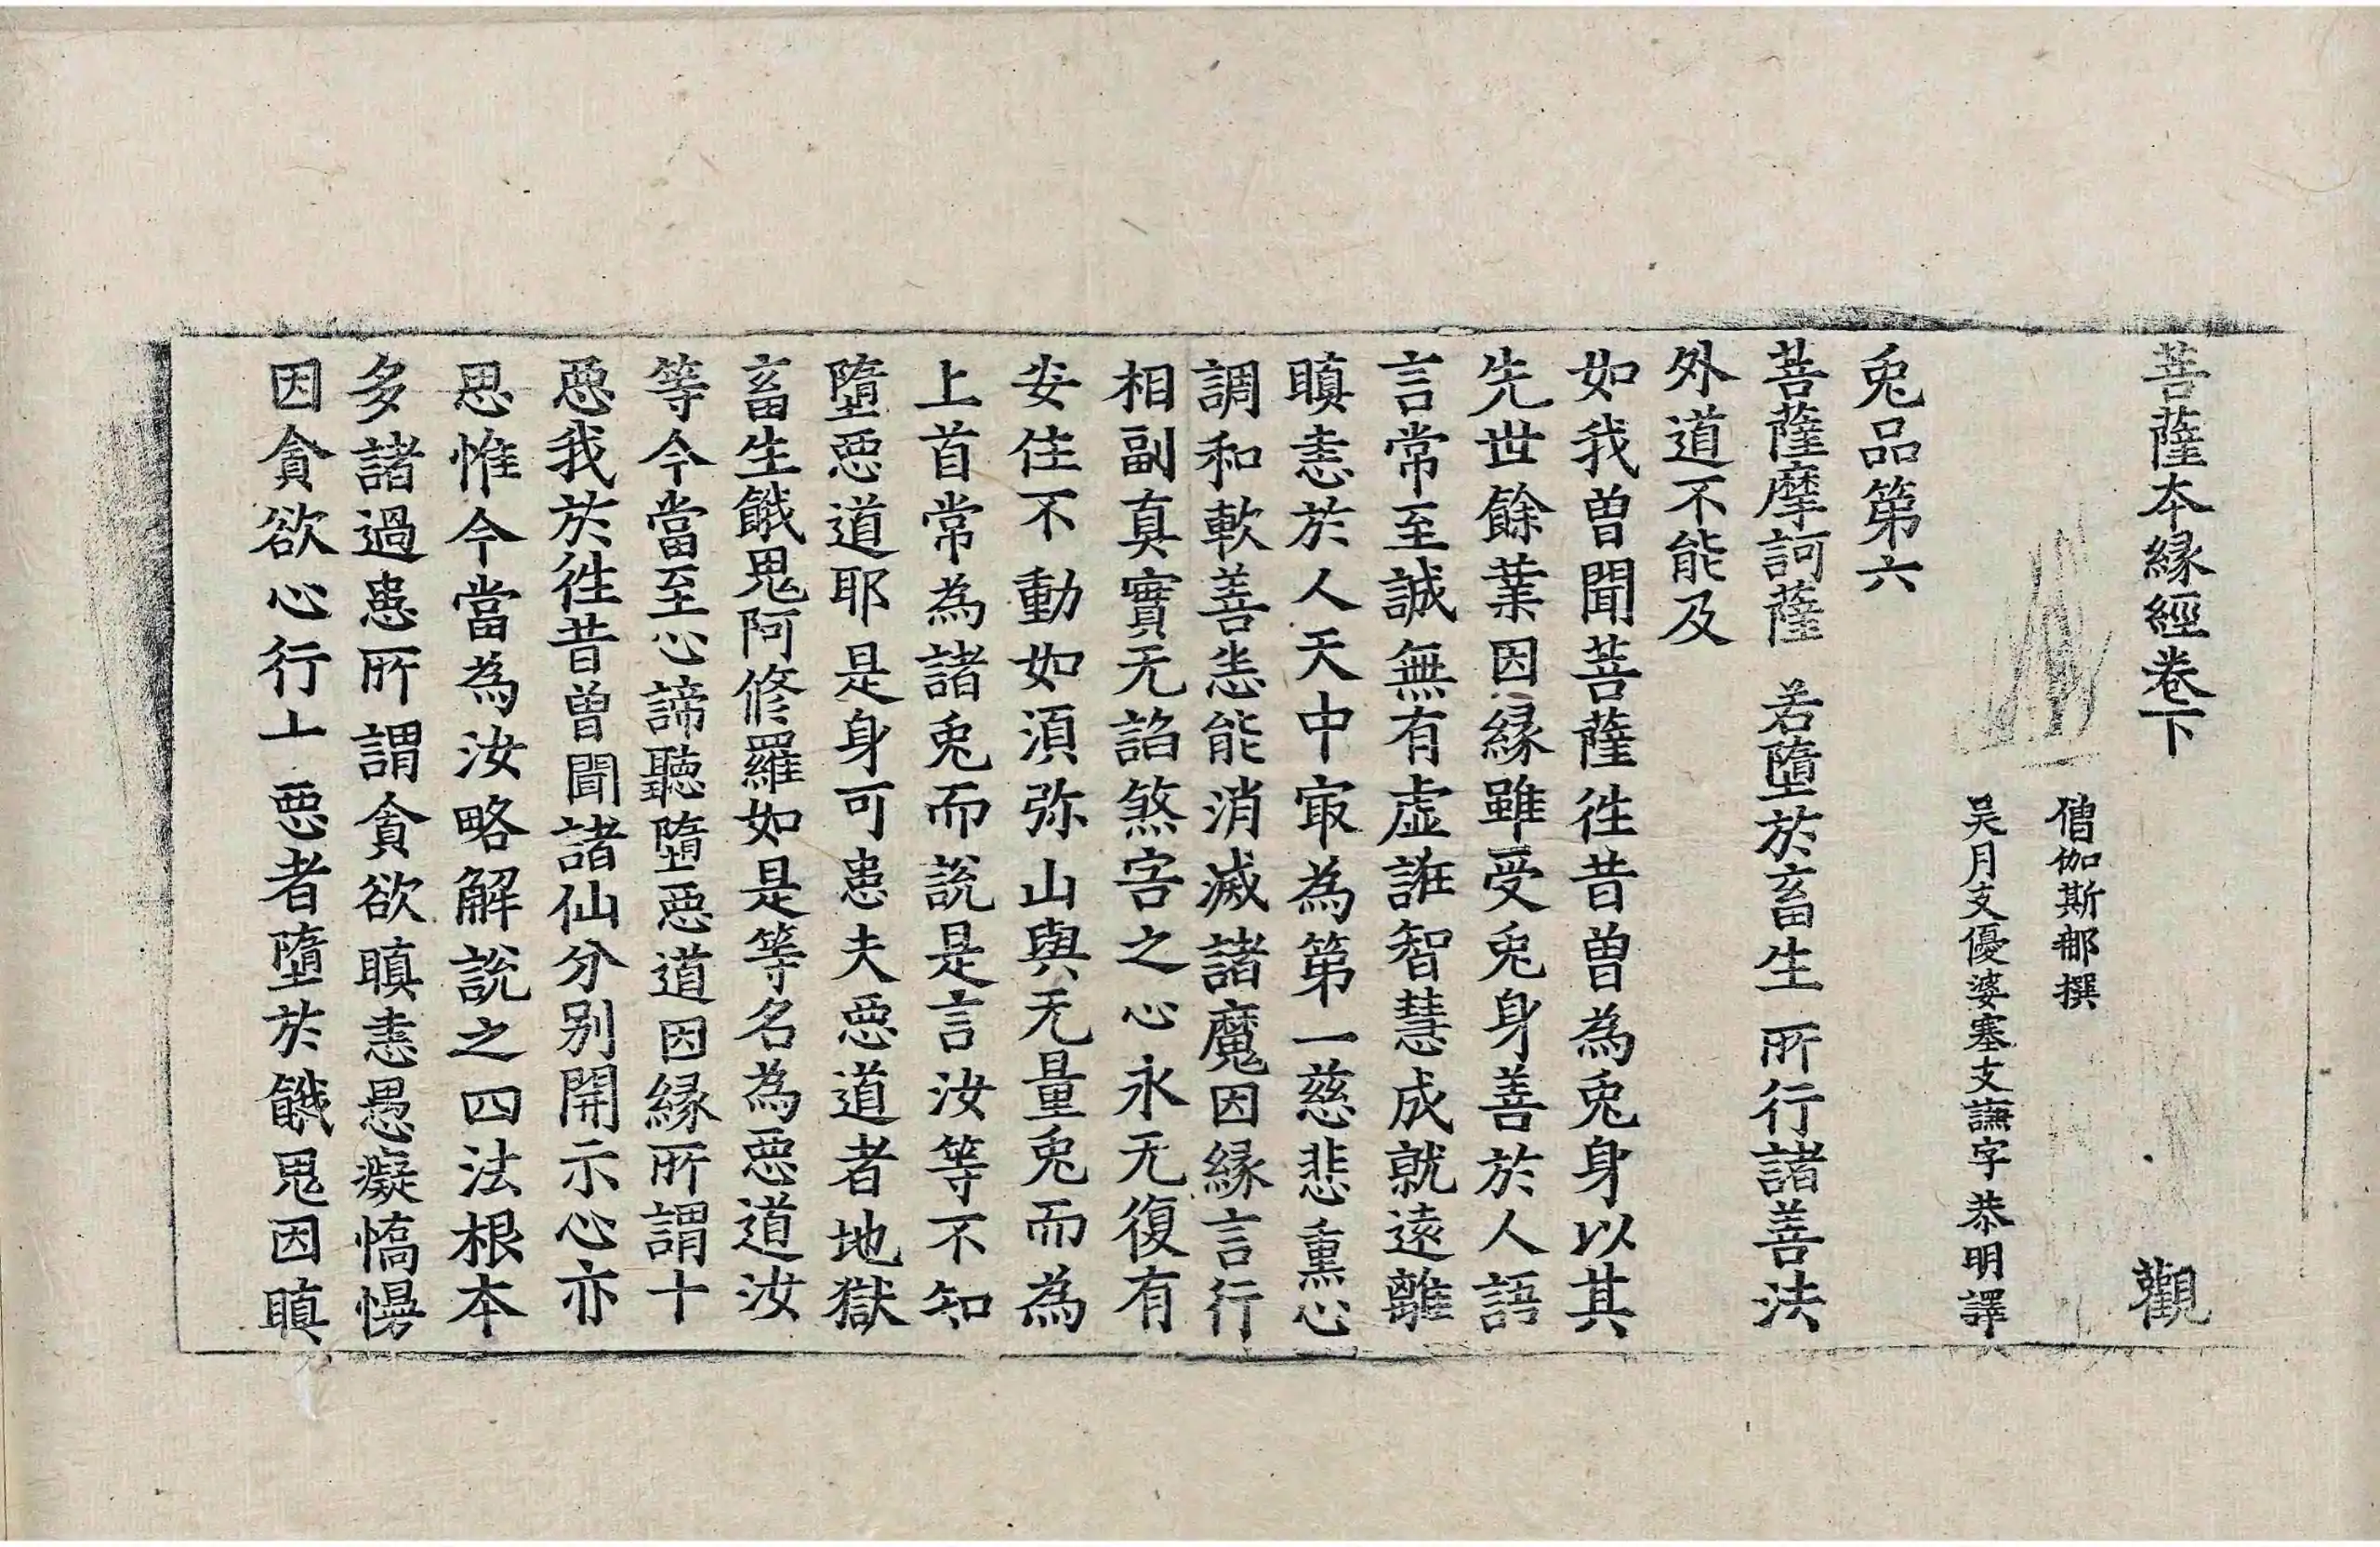 菩薩本緣經卷下 觀
僧伽斯那撰
吴月支優婆塞支謙字恭明譯
兎品第六
菩薩摩訶薩 若墮於畜生 所行諸善法
外道不能及
如我曽聞菩薩徃昔曽為兎身以其
先世餘業因緣雖受兎身善於人語
言常至誠無有虛誑智慧成就遠離
瞋恚於人天中㝡為第一慈悲熏心
調和軟善悉能消滅諸魔因緣言行
相副真實无諂煞害之心永无復有
安住不動如湏弥山與无量兎而為
上首常為諸兎而說是言汝等不知
墮惡道耶是身可患夫惡道者地獄
畜生餓鬼阿修羅如是等名為惡道汝
等今當至心諦聽墮惡道因緣所謂十
惡我於徃昔曽聞諸仙分别開示心亦
思惟今當為汝略解說之四法根本
多諸過患所謂貪欲瞋恚愚癡憍慢
因貪欲心行十惡者墮於餓鬼因瞋